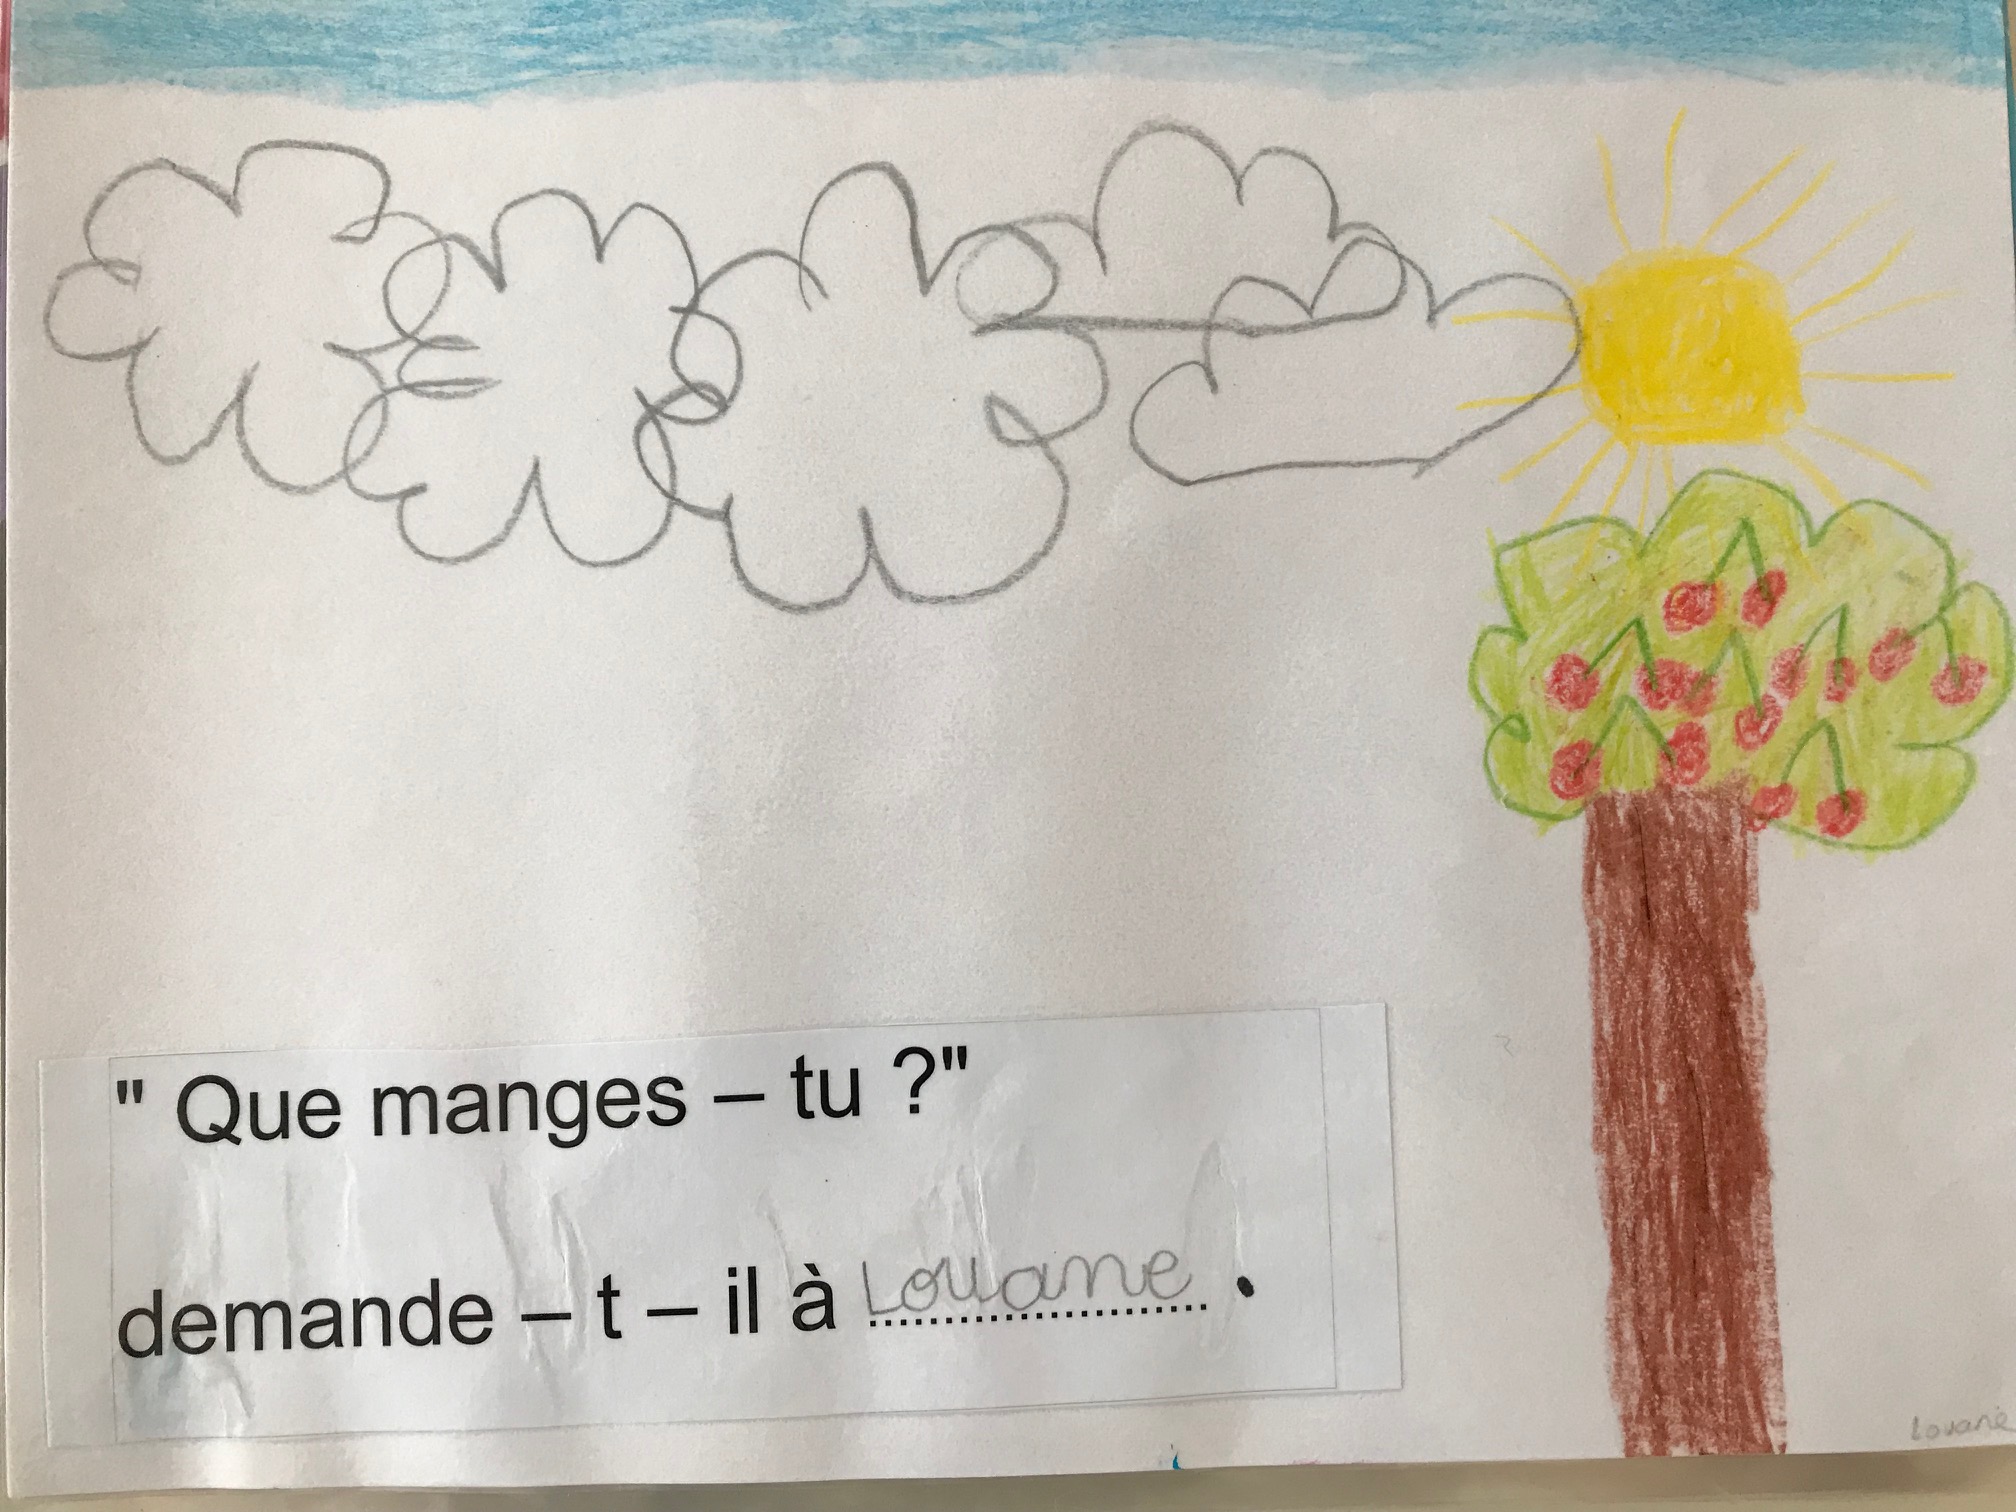 " Que manges – tu ?"
demande – t – il à Louane .
Louane